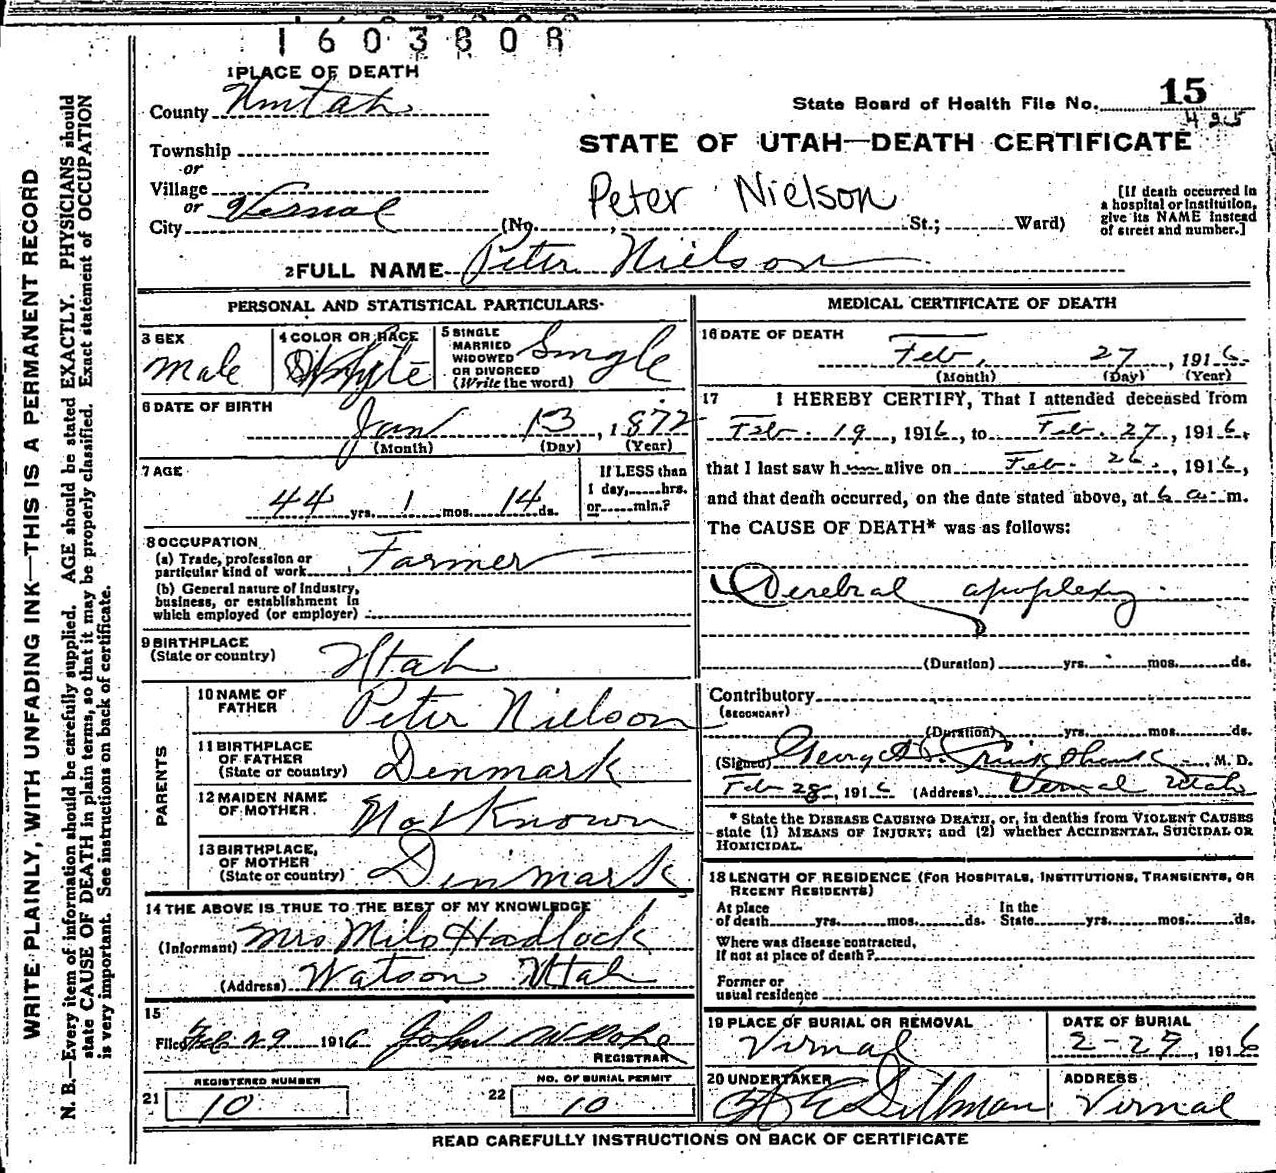 1603808
1 PLACE OF DEATH
County Uintah
State Board of Health File No. 15
425
STATE OF UTAH—DEATH CERTIFICATE
Township
or
Village
or
City Vernal (No. , St.; Ward)
Peter Nielson
[If death occurred in
a hospital or institution,
give its NAME instead
of street and number.]
2 FULL NAME Peter Nielson
PERSONAL AND STATISTICAL PARTICULARS
3 SEX
Male
4 COLOR OR RACE
Whyte
5 SINGLE
MARRIED
WIDOWED
OR DIVORCED
(Write the word)
Single
6 DATE OF BIRTH
Jan 13, 1872
(Month) (Day) (Year)
7 AGE
44 yrs. 1 mos. 14 ds.
If LESS than
1 day, hrs.
or min.?
8 OCCUPATION
(a) Trade, profession or
particular kind of work Farmer
(b) General nature of industry,
business, or establishment in
which employed (or employer)
9 BIRTHPLACE
(State or country) Utah
PARENTS
10 NAME OF
FATHER Peter Nielson
11 BIRTHPLACE
OF FATHER
(State or country) Denmark
12 MAIDEN NAME
OF MOTHER Not Known
13 BIRTHPLACE,
OF MOTHER
(State or country) Denmark
14 THE ABOVE IS TRUE TO THE BEST OF MY KNOWLEDGE
(Informant) Mrs Milo Hadlock
(Address) Watson Utah
15
Filed Feb 29 1916 John
REGISTRAR
REGISTERED NUMBER
21 10
NO. OF BURIAL PERMIT
22 10
MEDICAL CERTIFICATE OF DEATH
16 DATE OF DEATH
Feb. 27, 1916
(Month) (Day) (Year)
17 I HEREBY CERTIFY, That I attended deceased from
Feb. 19, 1916, to Feb. 27, 1916,
that I last saw him alive on Feb. 26, 1916,
and that death occurred, on the date stated above, at 6 a. m.
The CAUSE OF DEATH* was as follows:
Cerebral apoplexy
(Duration) yrs. mos. ds.
Contributory
(SECONDARY)
(Duration) yrs. mos. ds.
(Signed) George M. D.
Feb 28, 1916 (Address) Vernal Utah
* State the DISEASE CAUSING DEATH, or, in deaths from VIOLENT CAUSES
state (1) MEANS OF INJURY; and (2) whether ACCIDENTAL, SUICIDAL OR
HOMICIDAL.
18 LENGTH OF RESIDENCE (FOR HOSPITALS, INSTITUTIONS, TRANSIENTS, OR
RECENT RESIDENTS)
At place
of death yrs. mos. ds.
In the
State yrs. mos. ds.
Where was disease contracted,
If not at place of death?
Former or
usual residence
19 PLACE OF BURIAL OR REMOVAL
Vernal
DATE OF BURIAL
2-29, 1916
20 UNDERTAKER
Dillman
ADDRESS
Vernal
READ CAREFULLY INSTRUCTIONS ON BACK OF CERTIFICATE
WRITE PLAINLY, WITH UNFADING INK—THIS IS A PERMANENT RECORD
N. B.—Every item of information should be carefully supplied. AGE should be stated EXACTLY. PHYSICIANS should
state CAUSE OF DEATH in plain terms, so that it may be properly classified. Exact statement of OCCUPATION
is very important. See instructions on back of certificate.